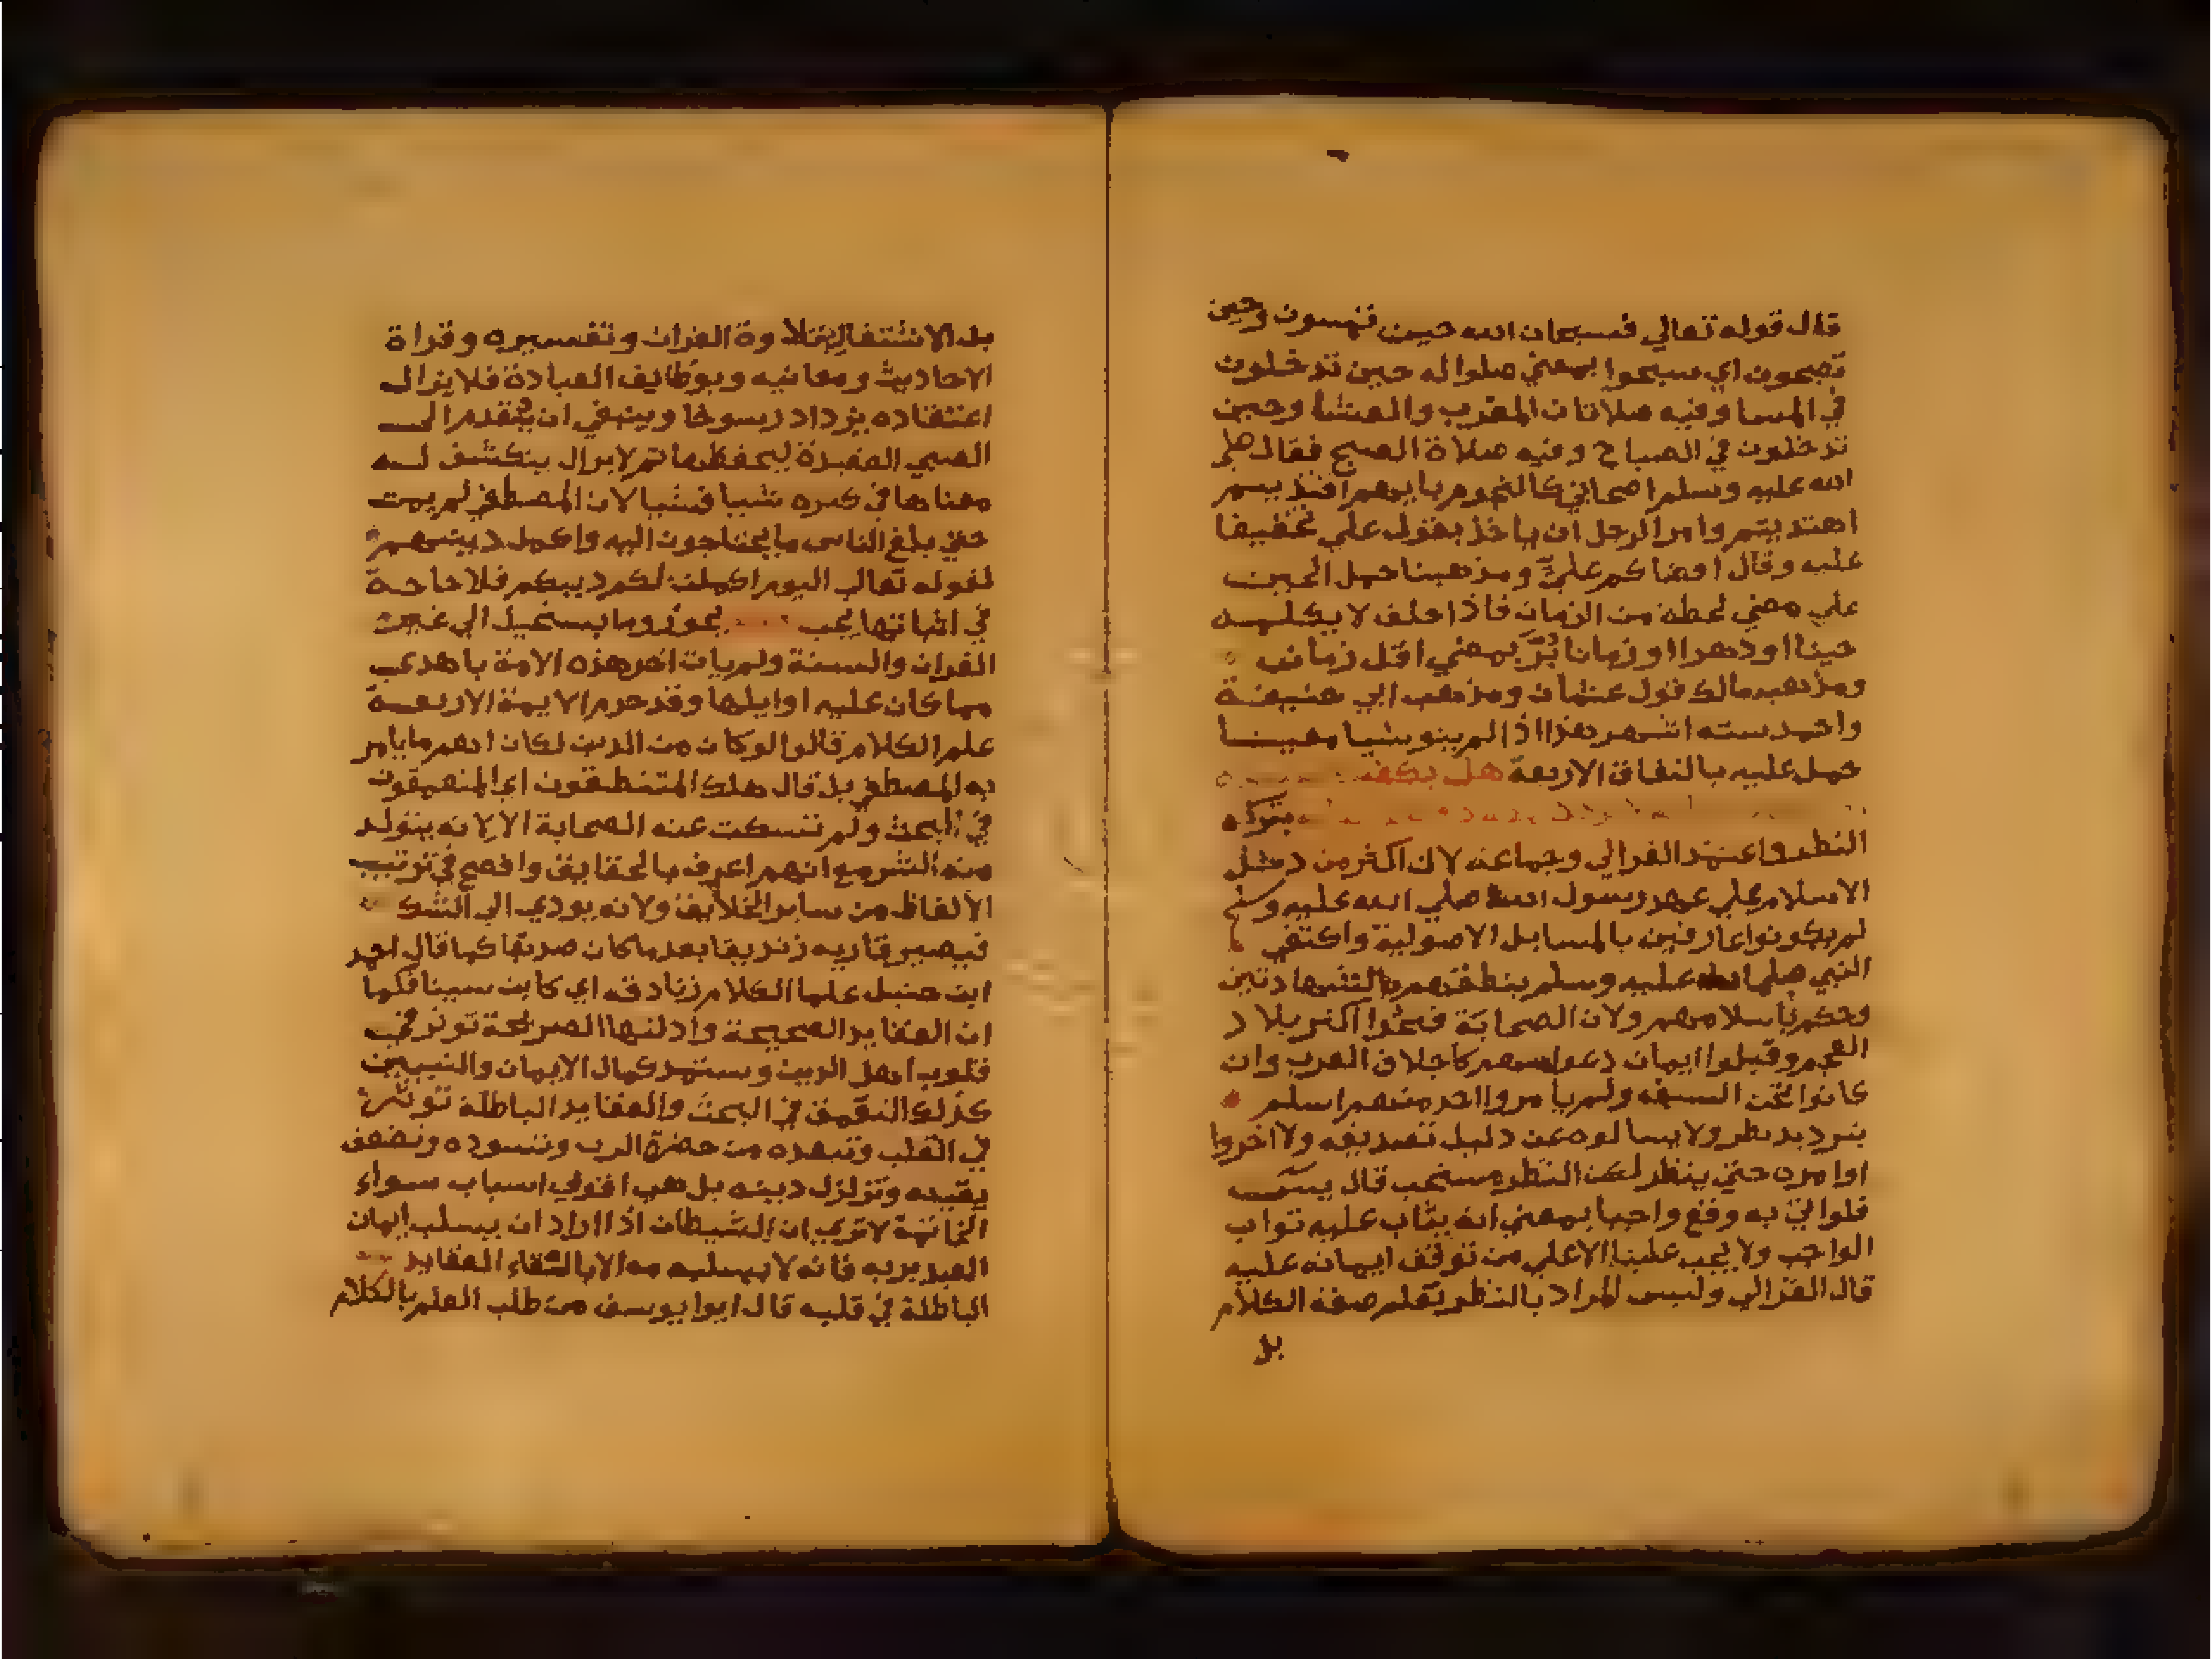 قال قوله تعالي فسبحان الله حين تمسون وحين
تصبحون اي سبحوا بمعني صلوا له حين تدخلون
في المسا وفيه صلاتان المغرب والعشا وحين
تدخلون في الصباح وفيه صلاة الصبح فقال صلي
الله عليه وسلم اصحابي كالنجوم بايهم اقتديتم
اهتديتم وامر الرجل ان ياخذ بقول علي تخفيفا
عليه وقال اقضاكم علي ومذهبنا حمل الحين
علي معني لحظه من الزمان فاذا حلف لا يكلمه
حينا او دهرا او زمانا بر بمعني اقل زمان
ومذهب مالك قول عثمان ومذهب ابي حنيفة
واحمد سته اشهر هذا اذا لم ينو شيا معينا
حمل عليه بالتفاق الاربعة هل يكف
بتركه
النظر واعتمد الغزالي وجماعه لان اكثر من دخل
الاسلام علي عهد رسول الله صلي الله عليه وسلم
لم يكونوا عارفين بالمسايل الاصولية واكتفي
النبي صلي الله عليه وسلم بنطقهم بالشهادتين
وحكم باسلامهم ولان الصحابة فتحوا اكثر بلاد
العجم وقبلوا ايمان دعوامهم كاجلاف العرب وان
كانوا تحت السيف ولم يامروا احد منهم اسلم
بترديد نظر ولا يسالوه عن دليل تصديقه ولا اخروا
اوامره حتي ينظر لكن النظر مستحب قال
فلو اتي به وقع واجبا بمعني انه يثاب عليه ثواب
الواجب ولا يجب علينا الا علي من توقف ايمانه عليه
قال الغزالي وليس المراد بالنظر تعلم صفة الكلام
بل
بل الاشتغال بتلاوة القران وتفسيره وقراة
الاحاديث ومعانيه وبوظايف العبادة فلا يزال
اعتقاده يزداد رسوخا وينبغي ان يتقدم الي
الصبي العقيدة ليحفظها ثم لا يزال ينكشف له
معناها في كبره شيا فشيا لان المصطفي لم يمت
حتي بلغ الناس ما يحتاجون اليه واكمل دينهم
لقوله تعالي اليوم اكملت لكم دينكم فلا حاجة
في اثباتها يجب يجوز وما يستحيل الي غير
القران والسنة ولم يات اخر هذه الامة باهدي
مما كان عليه اوايلها وقد حرم الايمة الاربعة
علم الكلام قالوا لو كان من الدين لكان اهم ما يامر
به المصطفي بل قال هلك المتنطعون اي المتعمقون
في البحث ولم تسكت عنه الصحابة الا لانه يتولد
منه الشر مع انهم اعرف بالحقايق وافصح في ترتيب
الالفاظ من ساير الخلايق ولانه يودي الي الشك
فيصير قاريه زنديقا بعد ما كان صديقا كما قال احمد
ابن حنبل علما الكلام زنادقه اي كابن سينا فكما
ان العقايد الصحيحة وادلتها الصريحة توثر في
قلوب اهل الدين ويستمد كمال الايمان والتبيين
كذلك التعمق في البحث والعقايد الباطلة توثر
في القلب وتبعده من حضرة الرب وتسوده وتضعف
يقينه وتزلزل دينه بل هي اقوي اسباب سواء
الخاتمة لا تري ان الشيطان اذا اراد ان يسلب ايمان
العبد بربه فانه لا يسلبه منه الا بالقاء العقايد
الباطلة في قلبه قال ابوا يوسف من طلب العلم بالكلام